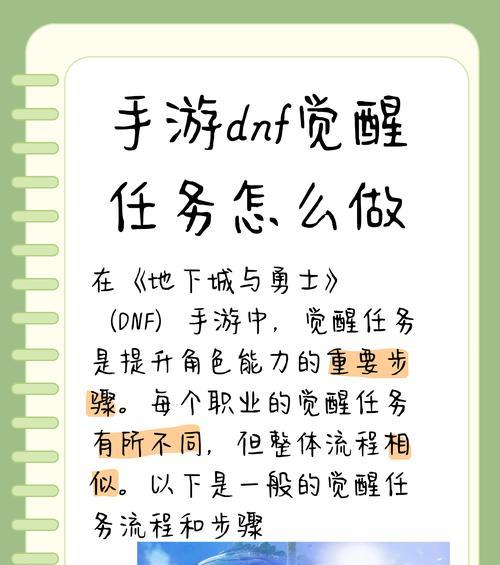 手游dnf觉醒
任务怎么做
在《地下城与勇士》
（DNF）手游中，觉醒任务
是提升角色能力的重要步
骤。每个职业的觉醒任务
有所不同，但整体流程相
似。以下是一般的觉醒任
务流程和步骤